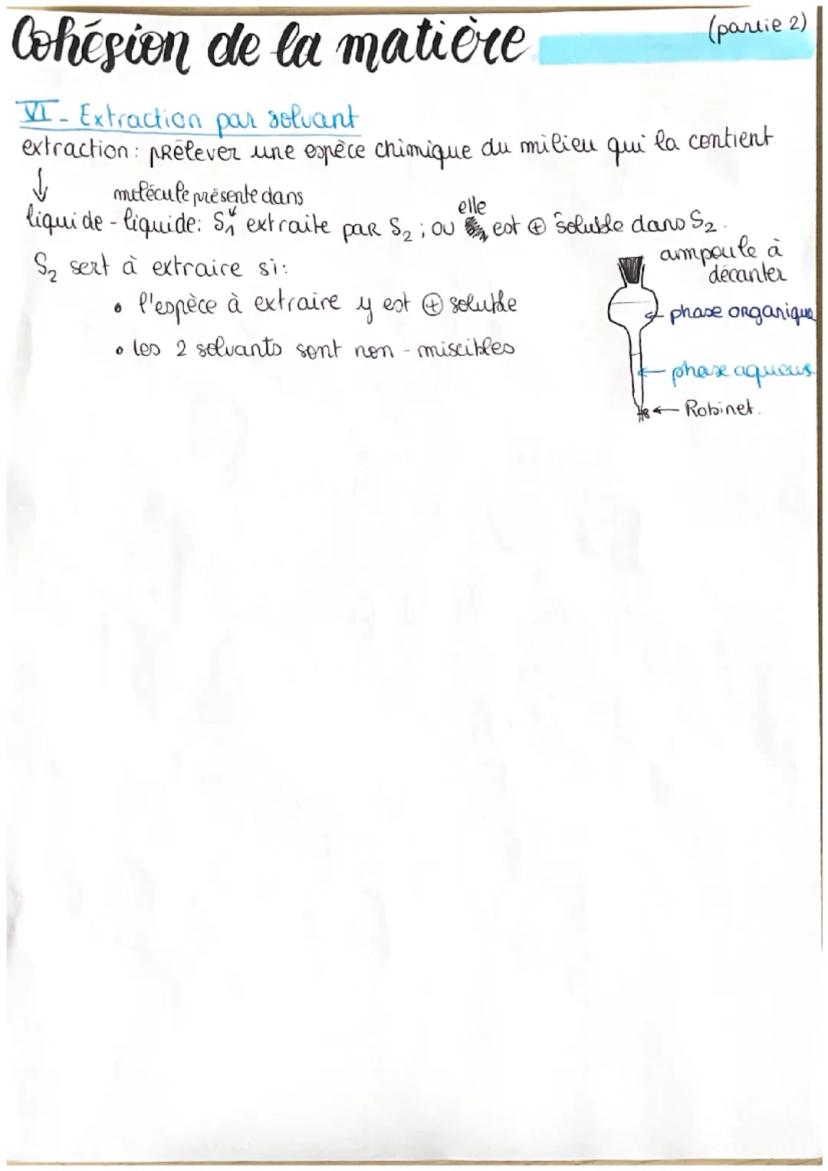 Cohésion de la matière
(partie 2)
VI - Extraction par solvant
extraction : prélever une espèce chimique du milieu qui la contient
↓ molécule présente dans
liquide - liquide : S₁ extraite par S₂ ; où elle est ⊕ soluble dans S₂.
S₂ sert à extraire si :
• l'espèce à extraire y est ⊕ soluble
• les 2 solvants sont non - miscibles
ampoule à
décanter
phase organique
phase aqueus
Robinet.